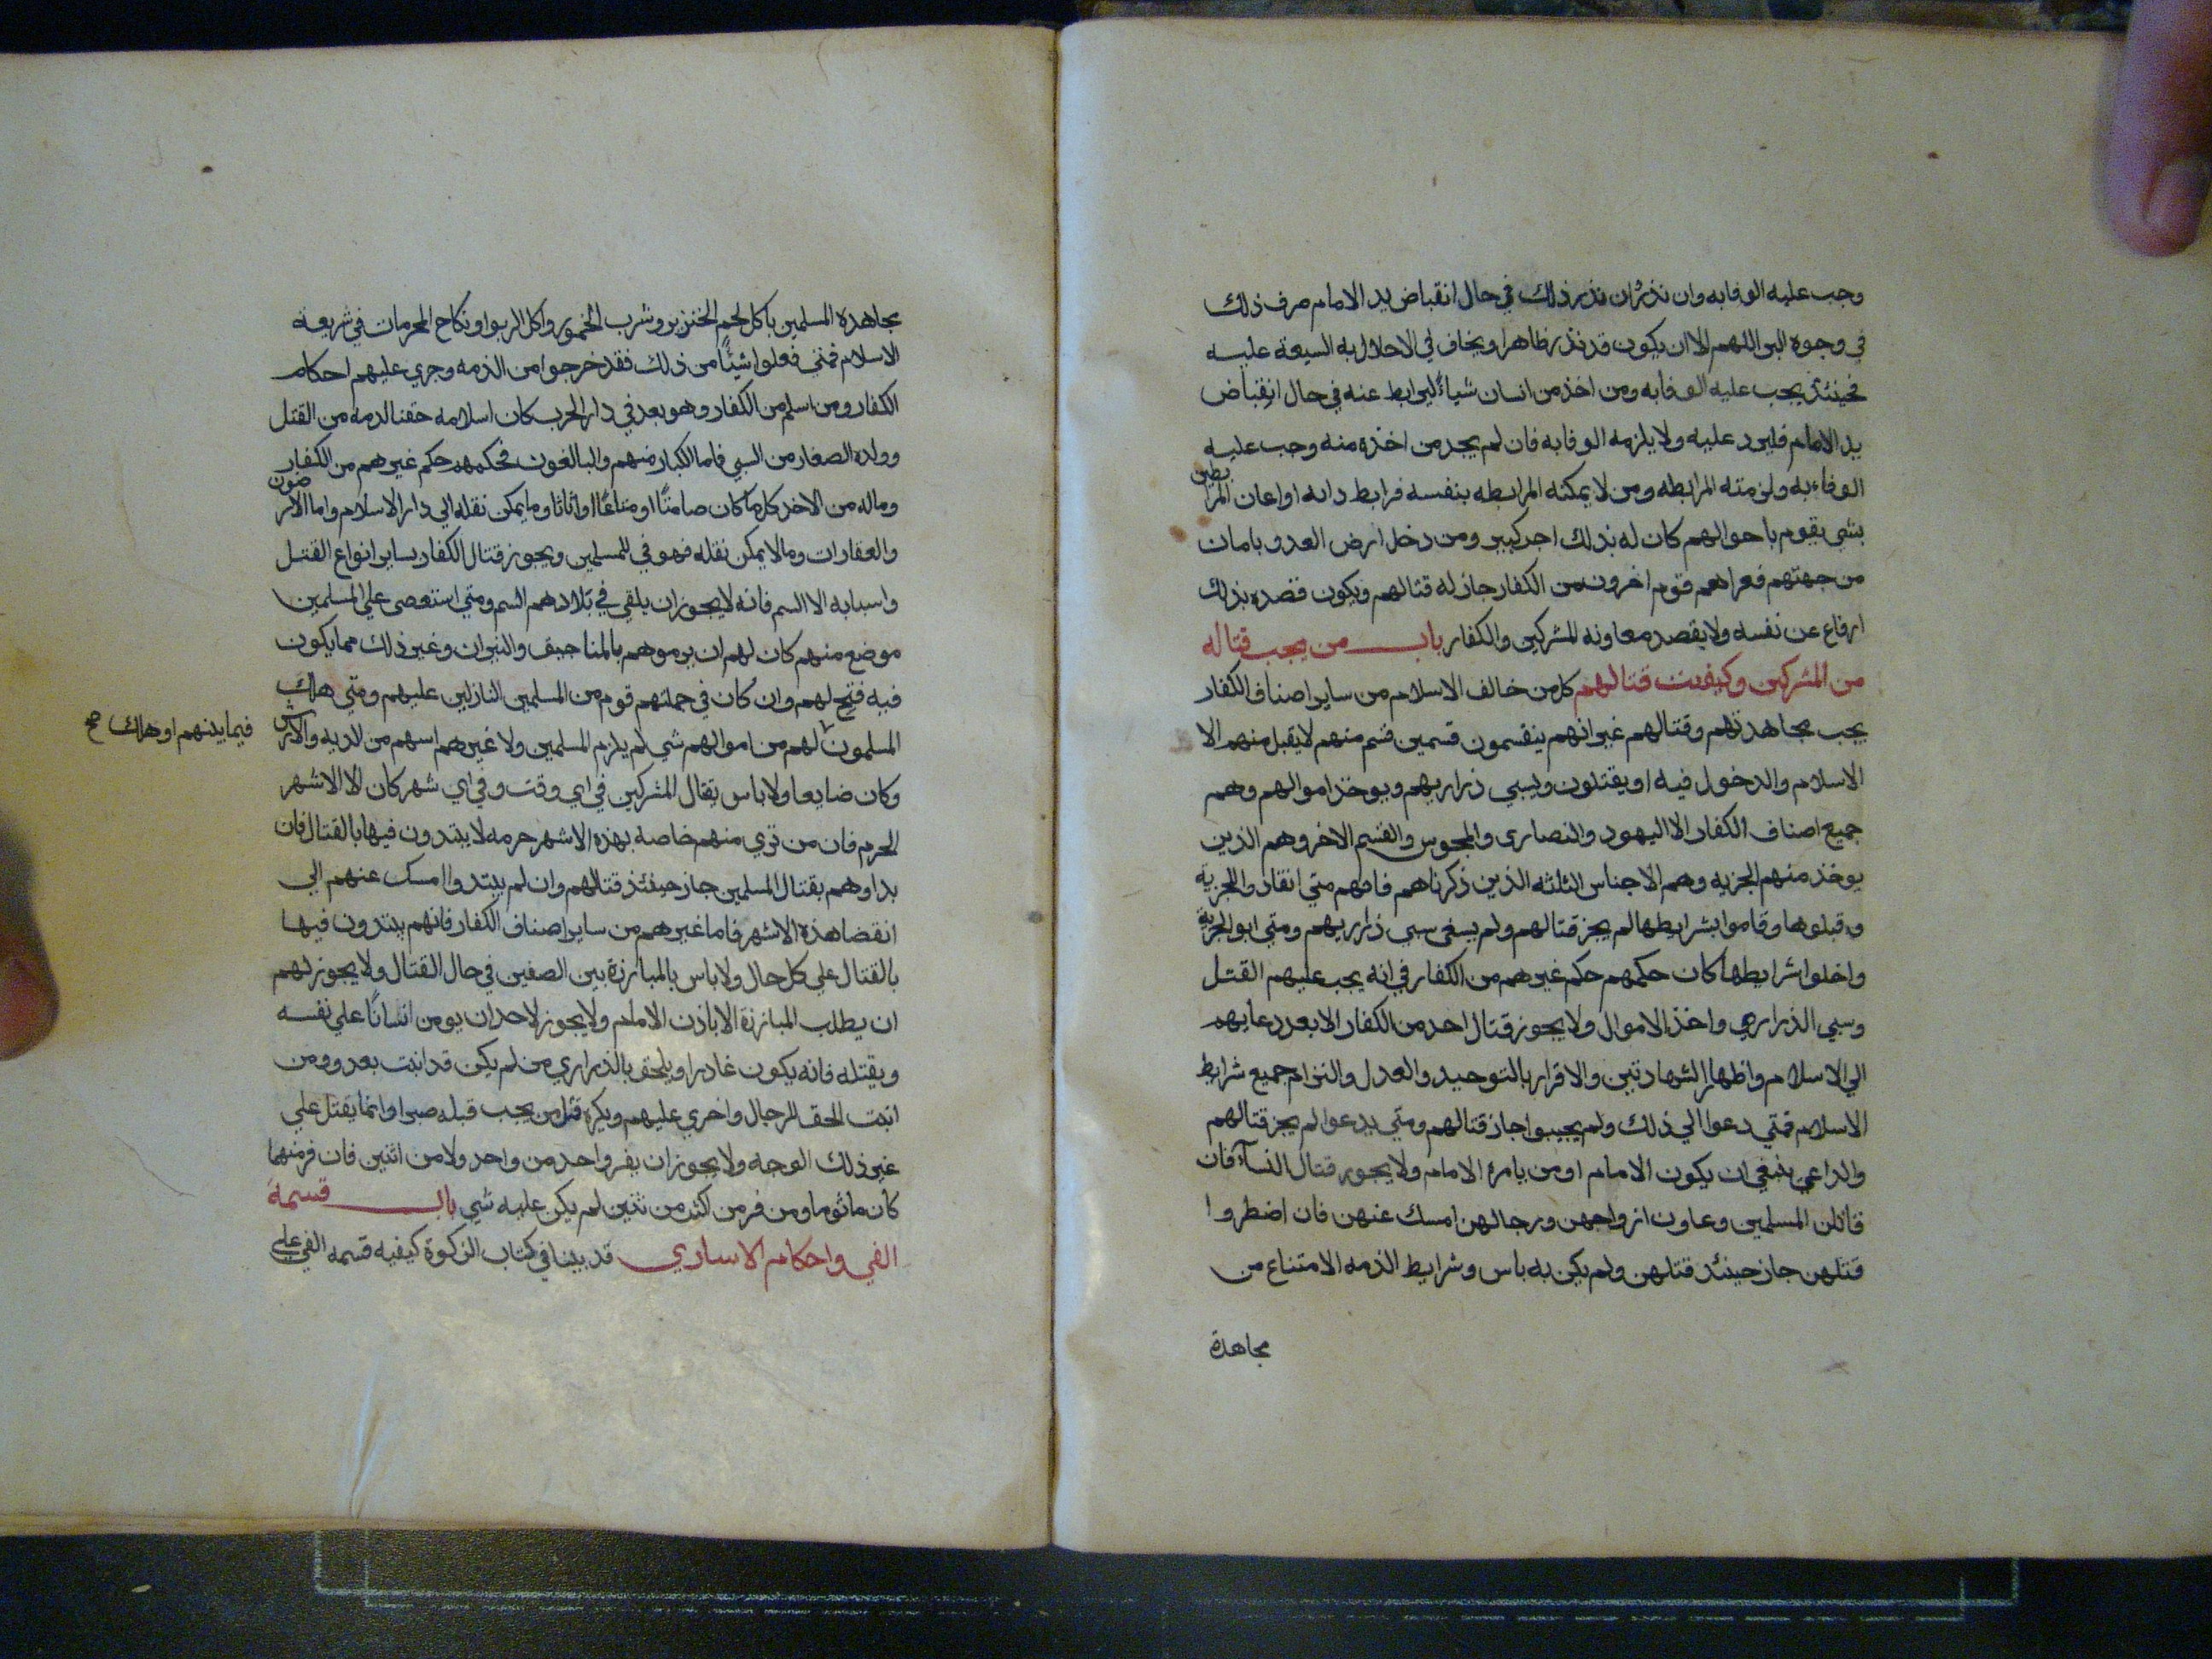 وجب عليه الوفا به وان نذر ان نذر ذلك في حال انقباض يد الامام صرف ذلك
في وجوه البر اللهم الا ان يكون قد نذر ظاهرا ويخاف في الاخلال به السيعة عليه
فحينئذ يجب عليه الوفا به ومن اخذ من انسان شياءً ليرابط عنه في حال انقباض
يد الامام فليرد عليه ولا يلزمه الوفا به فان لم يجد من اخذه منه وجب عليه
الوفاء به ولزمته المرابطه ومن لا يمكنه المرابطه بنفسه فرابط دابه او اعان المرا
بطين
بشي يقوم باحوالهم كان له بذلك اجر كبير ومن دخل ارض العدو بامان
من جهتهم فغزاهم قوم اخرون من الكفار جاز له قتالهم ويكون قصده بذلك
ارفاع عن نفسه ولا يقصد معاونه المشركين والكفار باب من يجب قتاله
من المشركين وكيفيت قتالهم كل من خالف الاسلام من ساير اصناف الكفار
يجب مجاهدتهم وقتالهم غير انهم ينقسمون قسمين قسم منهم لا يقبل منهم الا
الاسلام والدخول فيه او يقتلون ويسبي ذراريهم ويوخذ اموالهم وهم
جميع اصناف الكفار الا اليهود والنصارى والمجوس والقسم الاخر وهم الذين
يوخذ منهم الجزيه وهم الاجناس الثلثه الذين ذكرناهم فانهم متي انقادوا للجزية
وقبلوها وقاموا بشرايطها لم يجز قتالهم ولم يسغ سبي ذراريهم ومتي ابوا الجزية
واخلوا بشرايطها كان حكمهم حكم غيرهم من الكفار في انه يجب عليهم القتل
وسبي الذراري واخذ الاموال ولا يجوز قتال احد من الكفار الا بعد دعايهم
الي الاسلام واظهار الشهادتين والاقرار بالتوحيد والعدل والتزام جميع شرايط
الاسلام فمتي دعوا الي ذلك ولم يجيبوا جاز قتالهم ومتي لم يدعوا لم يجز قتالهم
والداعي ينبغي ان يكون الامام او من يامره الامام ولا يجوز قتال النسآء فان
قاتلن المسلمين وعاون ازواجهن ورجالهن امسك عنهن فان اضطروا
قتلهن جاز حينئذ قتلهن ولم يكن به باس وشرايط الذمه الامتناع من
مجاهدة
مجاهدة المسلمين باكل لحم الخنزير وشرب الخمور واكل الربوا ونكاح المحرمات في شريعة
الاسلام فمتي فعلوا شيئًا من ذلك فقد خرجوا من الذمه وجري عليهم احكام
الكفار ومن اسلم من الكفار وهو بعد في دار الحرب كان اسلامه حقنا لدمه من القتل
وولده الصغار من السبي فاما الكبار منهم والبالغون فحكمهم حكم غيرهم من الكفار
وماله من الاخذ كل ما كان صامتًا او متاعًا او اثاثا وما يمكن نقله الي دار الاسلام واما الار
ضون
والعقارات وما لا يمكن نقله فهو في للمسلمين ويجوز قتال الكفار بساير انواع القتل
واسبابه الا السم فانه لا يجوز ان يلقي في بلادهم السم ومتي استعصى علي المسلمين
موضع منهم كان لهم ان يرموهم بالمناجيق والنيران وغير ذلك مما يكون
فيه فتح لهم وان كان في جملتهم قوم من المسلمين النازلين عليهم ومتي هلك
المسلمون لهم من اموالهم شي لم يلزم المسلمين ولا غيرهم اسهم من الديه والارش
فيما بينهم او هلك صح
وكان ضايعا ولا باس بقتال المشركين في اي وقت وفي اي شهر كان الا الاشهر
الحرم فان من تري منهم خاصه بهذه الاشهر حرمه لا يبتدون فيها بالقتال فان
بداوهم بقتال المسلمين جاز حينئذ قتالهم وان لم يبتدوا امسك عنهم الي
انقضا هذه الاشهر فاما غيرهم من ساير اصناف الكفار فانهم يبتدون فيها
بالقتال علي كل حال ولا باس بالمبارزة بين الصفين في حال القتال ولا يجوز لهم
ان يطلب المبارزة الا باذن الامام ولا يجوز لاحد ان يومن انسانًا علي نفسه
ويقتله فانه يكون غادرا ويلحق بالذراري من لم يكن قد انبت بعد ومن
انبت الحق بالرجال واجري عليهم ويكره قتل من يجب قبله صبرا وانما يقتل علي
غير ذلك الوجه ولا يجوز ان يفر واحد من واحد ولا من اثنين فان فر منهما
كان ماثوما ومن فر من اكثر من ثنين لم يكن عليه شي باب قسمة
الفي واحكام الاساري قد بينا في كتاب الزكوة كيفيه قسمه الفي علي